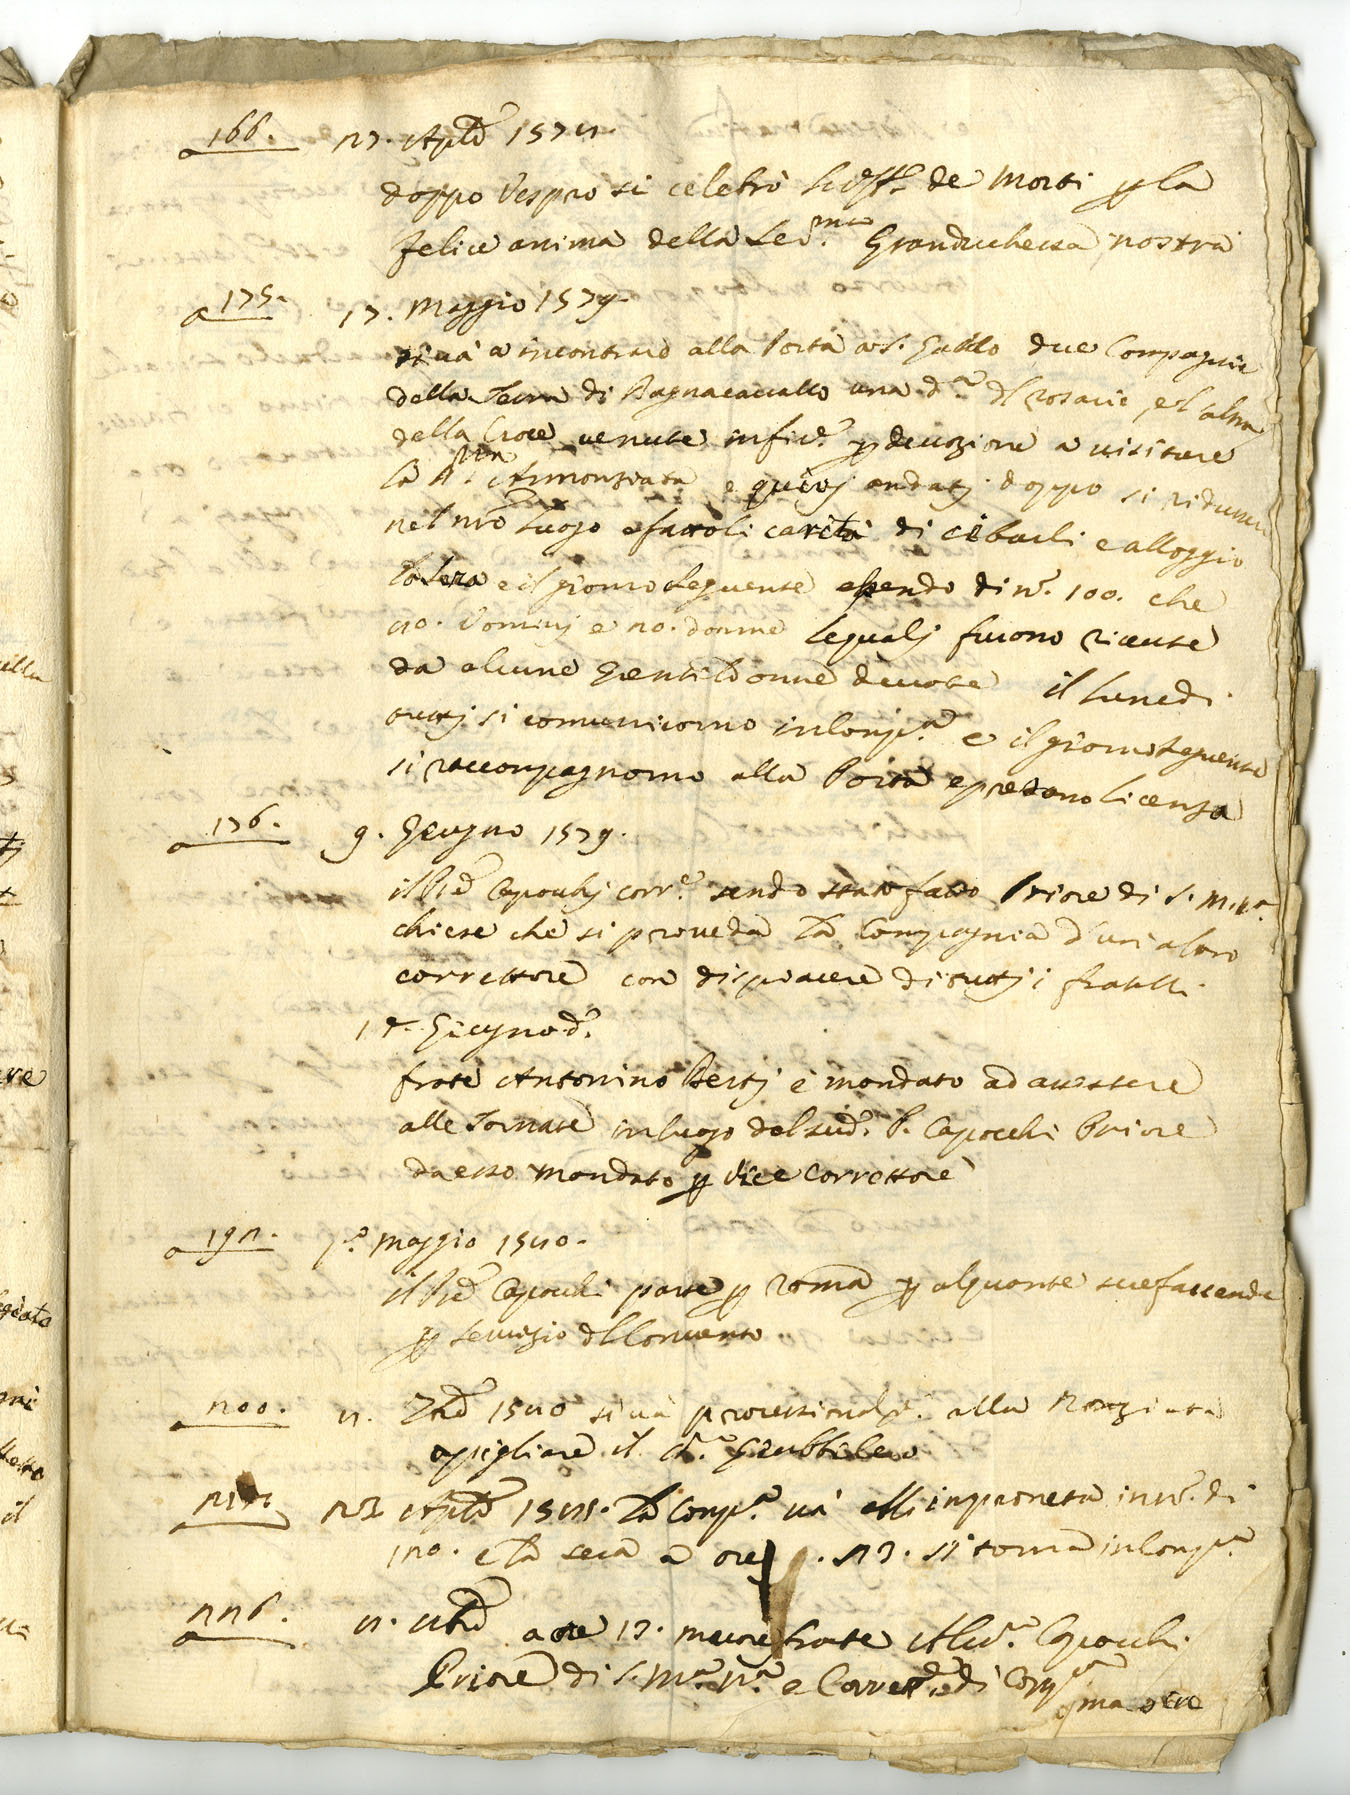 a 166. 27. Aple 1578.
doppo Vespro si celebrò l'uff.o de Morti p la
felice anima della Ser.ma Granduchessa nostra
a 175. 17. Maggio 1579.
si và a incontrare alla Porta a S. Gallo due Compagnie
della Terra di Bagnacavallo una d.a del rosario, e l'altra
della Croce venute in fir.e p devozione a visitare
la S.ma Annonziata e quivi andatj doppo si ridussero
nel nro luogo e fattoli carità di cibarli e alloggio
la sera e il giorno seguente essendo di n.o 100. che
80. Vominj e 20. donne lequalj furono ricevute
da alcune Gentildonne devote il lunedi
tuttj si comunicorno in Comp.a e il giorno seguente
si raccompagnorno alla Porta e presono licenza
a 176. 9. Giugno 1579.
il Pre Capocchj corr.e sendo stato fatto Priore di S. M. N.a
chiese che si proveda la Compagnia d'un altro
correttore con dispiacere di tuttj i fratelli.
14. Giugno d.o
frate Antonino Bertj è mandato ad assistere
alle Tornate in luogo del sud.o P. Capocchi Priore
da esso mandato p Vice Correttore
a 192. p.o Maggio 1580.
il Pre Capocchi parte p Roma p alquante sue faccende
p servizio del Convento
a 200. 8. Xbre 1580 si và processionalm.e alla Nonziata
a pigliare il S.mo Giubbileo
23 Aple 1581. la Comp.a và all'impruneta in n.o di
120. e la sera a ore 23. si torna in Comp.a
a 226. 8. 8bre a ore 17. muore frate Aless.o Capocchi
Priore di S. M.a N.a e Corre.re di Comp.a
ma ore